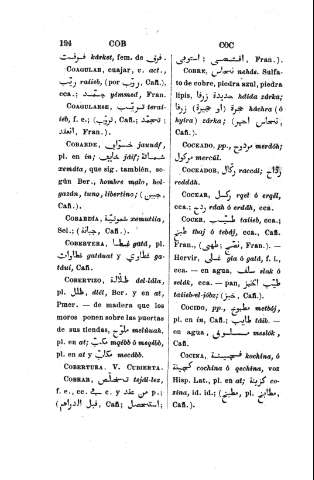 194 COB COC
فرق. فرقت kárket, fem. de
COAGULAR, cuajar, v. act.,
ريّب raïieb, (por روّب, Cañ.).
cca.; جمّد yémmed, Fran.
COAGULARSE, تريّب teraï-
ieb, f. e.; (تروّب, Cañ.; تجمّد,
انعقد, Fran.).
COBARDE,
pl. en in; خايف jáif;
que sig. también, se-
gún Ber., hombre malo, hol-
gazán, tuno, libertino; (جبين,
Cañ.).
COBARDÍA,
Sel.; (جبانة, Cañ.).
COBERTERA, غطا gatá, pl.
غطاوات gatáuat y
taúi, Cañ.
COBERTIZO, ظلالة del-lála,
pl. ظلل dlél, Bor. y en at,
Pmer. — de madera que los
moros ponen sobre las puertas
de sus tiendas,
pl. en at; مكبّ mqébb ó meqébb,
pl. en at y
COBERTURA. V. CUBIERTA.
COBRAR, تخلّص tejál-lez,
f. e., cc. في c. y من p.;
(استحصل, Cañ.; قبل الدراهم
استوفى; اقتضى, Fran.).
COBRE, نحاس nahás. Sulfa-
to de cobre, piedra azul, piedra
lipis, حديدة زرقا hdída zárka;
(أو) حجرة زرقا háchra (ó
hyíra) zárka; (نحاس احمر,
Cañ.).
COCEADO, pp., مردوح merdóh;
مركول mercúl.
COCEADOR, ركّال raccál; ردّاح
reddáh.
COCEAR, ركل rqel ó erqél,
cca.; ردح rdah ó erdáh, cca.
COCER, طيّب taiieb, cca.;
طبخ tbaj ó tebáj, cca., Cañ.
Fran., (نضّج, Fran.; طهى). —
Hervir, غلى gla ó galá, f. i.,
cca. — en agua, سلق slak ó
selák, cca. — pan, طيّب الخبز
taiieb-el-jóbz; (خبز, Cañ.).
COCIDO, pp., مطبوخ metbój,
pl. en in, Cañ.; طايب táib. —
en agua, مسلوق meslók,
Cañ.
COCINA, كوشينة kochína, ó
كشينة cochína ó qechína, voz
Hisp. Lat., pl. en at; كزينة co-
zína, id. id.; (مطبخ, pl. مطابخ,
Cañ.).